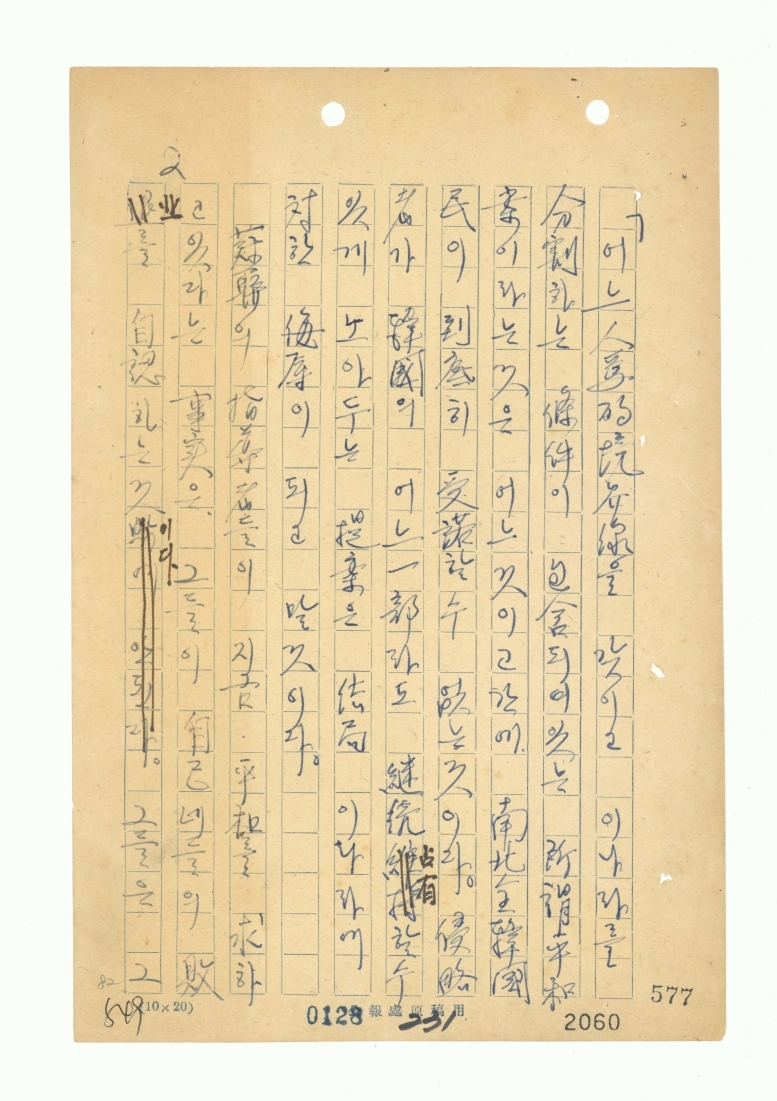 2
「어느 人爲的境界線을 갖이고 이나라를
分割하는 條件이 包含되여있는 所謂平和
案이라는것은 어느것이고간에 南北全韓國
民이 到底히 受諾할수 없는것이다。 侵略
者가 韓國의 어느一部라도 継続 占有할수
있게 노아두는 提案은 結局 이나라에
対한 侮辱이 되고 말것이다。
蘇聯의 指導者들이 지금 平和를 求하
고 있다는 事実은、 그들이 自己네들의 敗
를 自認하는것이다. 그들은 그
(10×20)
報處原稿用
0128
231
2060
577
549
82